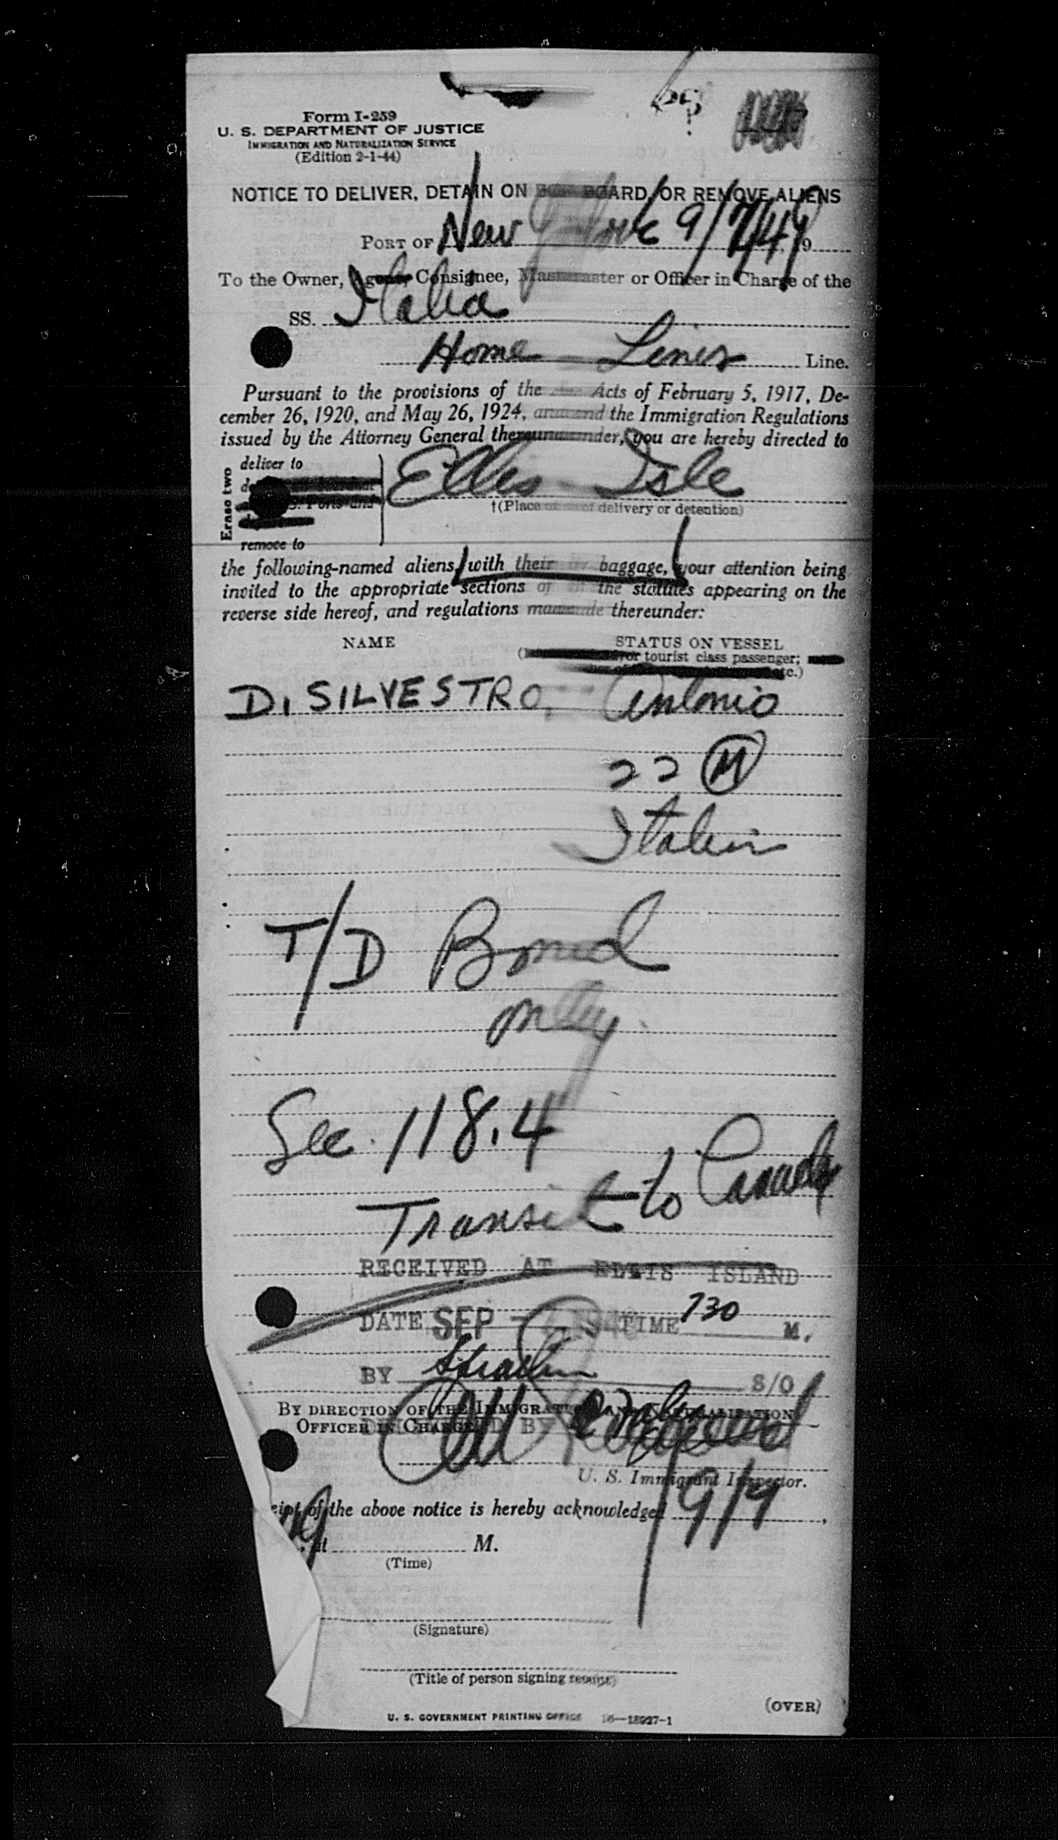 Form I-259
U. S. DEPARTMENT OF JUSTICE
IMMIGRATION AND NATURALIZATION SERVICE
(Edition 2-1-44)
NOTICE TO DELIVER, DETAIN ON BOARD, OR REMOVE ALIENS
PORT OF New York 9/7/49
To the Owner, Agent, Consignee, Master or Officer in Charge of the
SS. Italia
Home Lines Line.
Pursuant to the provisions of the Acts of February 5, 1917, De-
cember 26, 1920, and May 26, 1924, and the Immigration Regulations
issued by the Attorney General thereunder, you are hereby directed to
deliver to
Erase two
remove to
Ellis Isle
†(Place of delivery or detention)
the following-named aliens, with their baggage, your attention being
invited to the appropriate sections of the statutes appearing on the
reverse side hereof, and regulations made thereunder:
NAME STATUS ON VESSEL
tourist class passenger;
etc.)
DiSILVESTRO, Antonio
22 M
Italian
T/D Bond
only
Sec. 118.4
Transit to Canada
RECEIVED AT ELLIS ISLAND
DATE SEP TIME 730 M.
BY S/O
BY DIRECTION OF THE IMMIGRATION AND NATURALIZATION
OFFICER IN CHARGE
U. S. Immigrant Inspector.
of the above notice is hereby acknowledged 9/7
at M.
(Time)
(Signature)
(Title of person signing receipt)
U. S. GOVERNMENT PRINTING OFFICE 16—18927-1
(OVER)